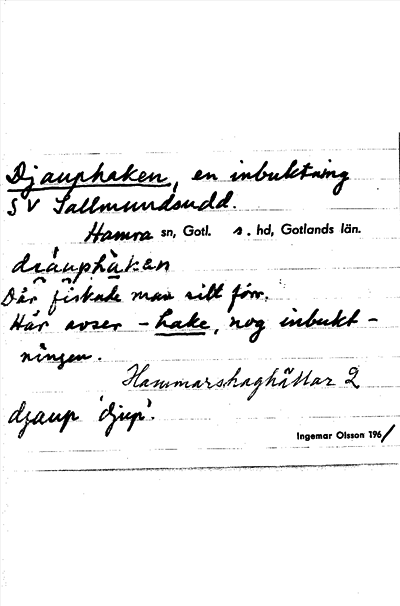 Djauphaken, en inbuktning
SV Sallmundsudd.
Hamra sn, Gotl. s. hd, Gotlands län.
Där fiskade man sill förr.
Här avser -hake, nog inbukt-
ningen.
Hammarshaghällar 2
djaup 'djup'.
Ingemar Olsson 196/